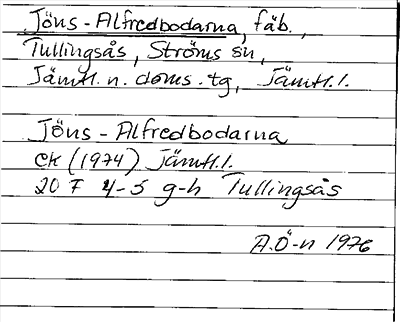 Jöns-Alfredbodarna, fäb.,
Tullingsås, Ströms sn,
Jämtl. n. doms. tg, Jämtl. l.
Jöns-Alfredbodarna
ek (1974) Jämtl. l.
20 F 4-5 g-h Tullingsås
A.Ö-n 1976